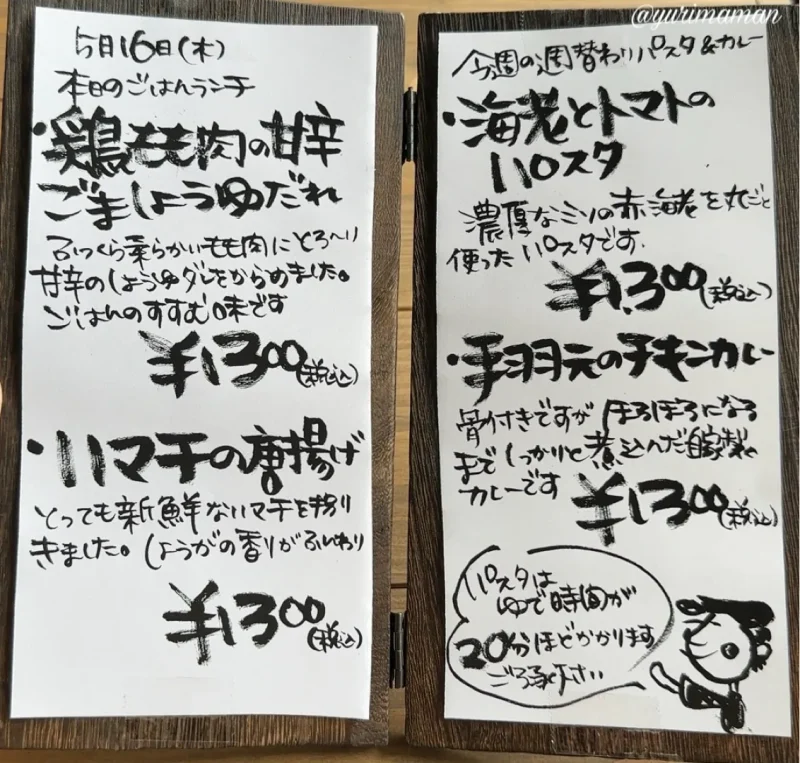 @yurimaman
5月16日(木)
本日のごはんランチ
・鶏もも肉の甘辛
ごましょうゆだれ
ふっくら柔らかいもも肉にとろ〜り
甘辛のしょうゆダレをからめました。
ごはんのすすむ味です
¥1300(税込)
・ハマチの唐揚げ
とっても新鮮なハマチを
きました。しょうがの香りがふんわり
¥1300(税込)
今週の週替わりパスタ&カレー
・海老とトマトの
パスタ
濃厚なミソの赤海老を丸ごと
使ったパスタです.
¥1,300(税込)
・手羽元のチキンカレー
骨付きですがほろほろになる
までしっかりと煮込んだ自家製
カレーです
¥1300(税込)
パスタは
ゆで時間が
20分ほどかかります
ご了承下さい